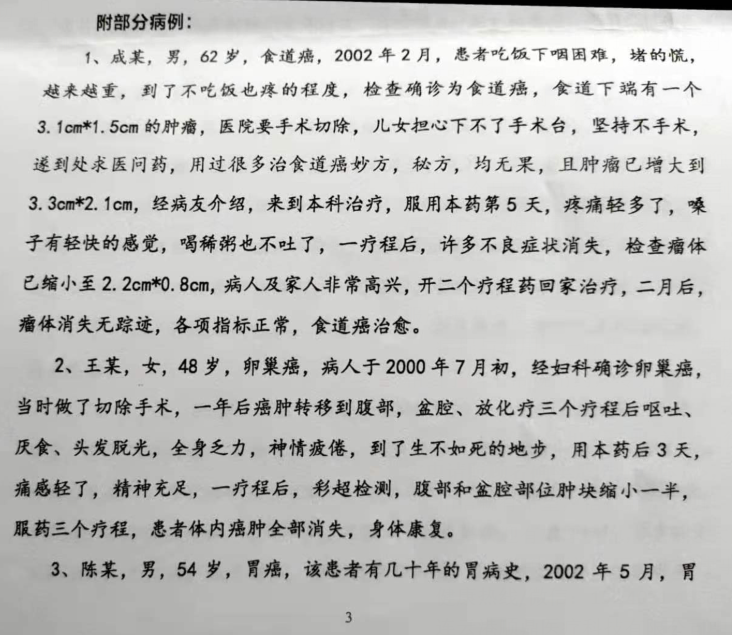 附部分病例：
1、成某，男，62岁，食道癌，2002年2月，患者吃饭下咽困难，堵的慌，
越来越重，到了不吃饭也疼的程度，检查确诊为食道癌，食道下端有一个
3.1cm*1.5cm的肿瘤，医院要手术切除，儿女担心下不了手术台，坚持不手术，
遂到处求医问药，用过很多治食道癌妙方，秘方，均无果，且肿瘤已增大到
3.3cm*2.1cm，经病友介绍，来到本科治疗，服用本药第5天，疼痛轻多了，嗓
子有轻快的感觉，喝稀粥也不吐了，一疗程后，许多不良症状消失，检查瘤体
已缩小至2.2cm*0.8cm，病人及家人非常高兴，开二个疗程药回家治疗，二月后，
瘤体消失无踪迹，各项指标正常，食道癌治愈。
2、王某，女，48岁，卵巢癌，病人于2000年7月初，经妇科确诊卵巢癌，
当时做了切除手术，一年后癌肿转移到腹部，盆腔、放化疗三个疗程后呕吐、
厌食、头发脱光，全身乏力，神情疲倦，到了生不如死的地步，用本药后3天，
痛感轻了，精神充足，一疗程后，彩超检测，腹部和盆腔部位肿块缩小一半，
服药三个疗程，患者体内癌肿全部消失，身体康复。
3、陈某，男，54岁，胃癌，该患者有几十年的胃病史，2002年5月，胃
3